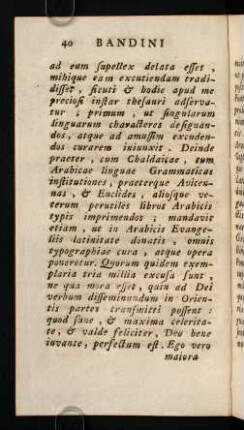 40 BANDINI
ad eum supellex delata esset ,
mihique eam excutiendam tradi-
disset , sicuti & hodie apud me
preciosi instar thesauri adserva-
tur ; primum , ut singularum
linguarum characteres designan-
dos , atque ad amussim excuden-
dos curarem iniunxit . Deinde
praeter , cum Chaldaicae , tum
Arabicae linguae Grammaticas
institutiones , praeterque Avicen-
nas , & Euclides , aliosque ve-
terum perutiles libros Arabicis
typis imprimendos ; mandavit
etiam , ut in Arabicis Evange-
liis latinitate donatis , omnis
typographiae cura , atque opera
poneretur. Quorum quidem exem-
plaria tria millia excusa sunt ,
ne qua mora esset , quin ad Dei
verbum disseminandum in Orien-
tis partes transmitti possent :
quod sane , & maxima celerita-
te , & valde feliciter , Deo bene
iuvante , perfectum est . Ego vero
maiora